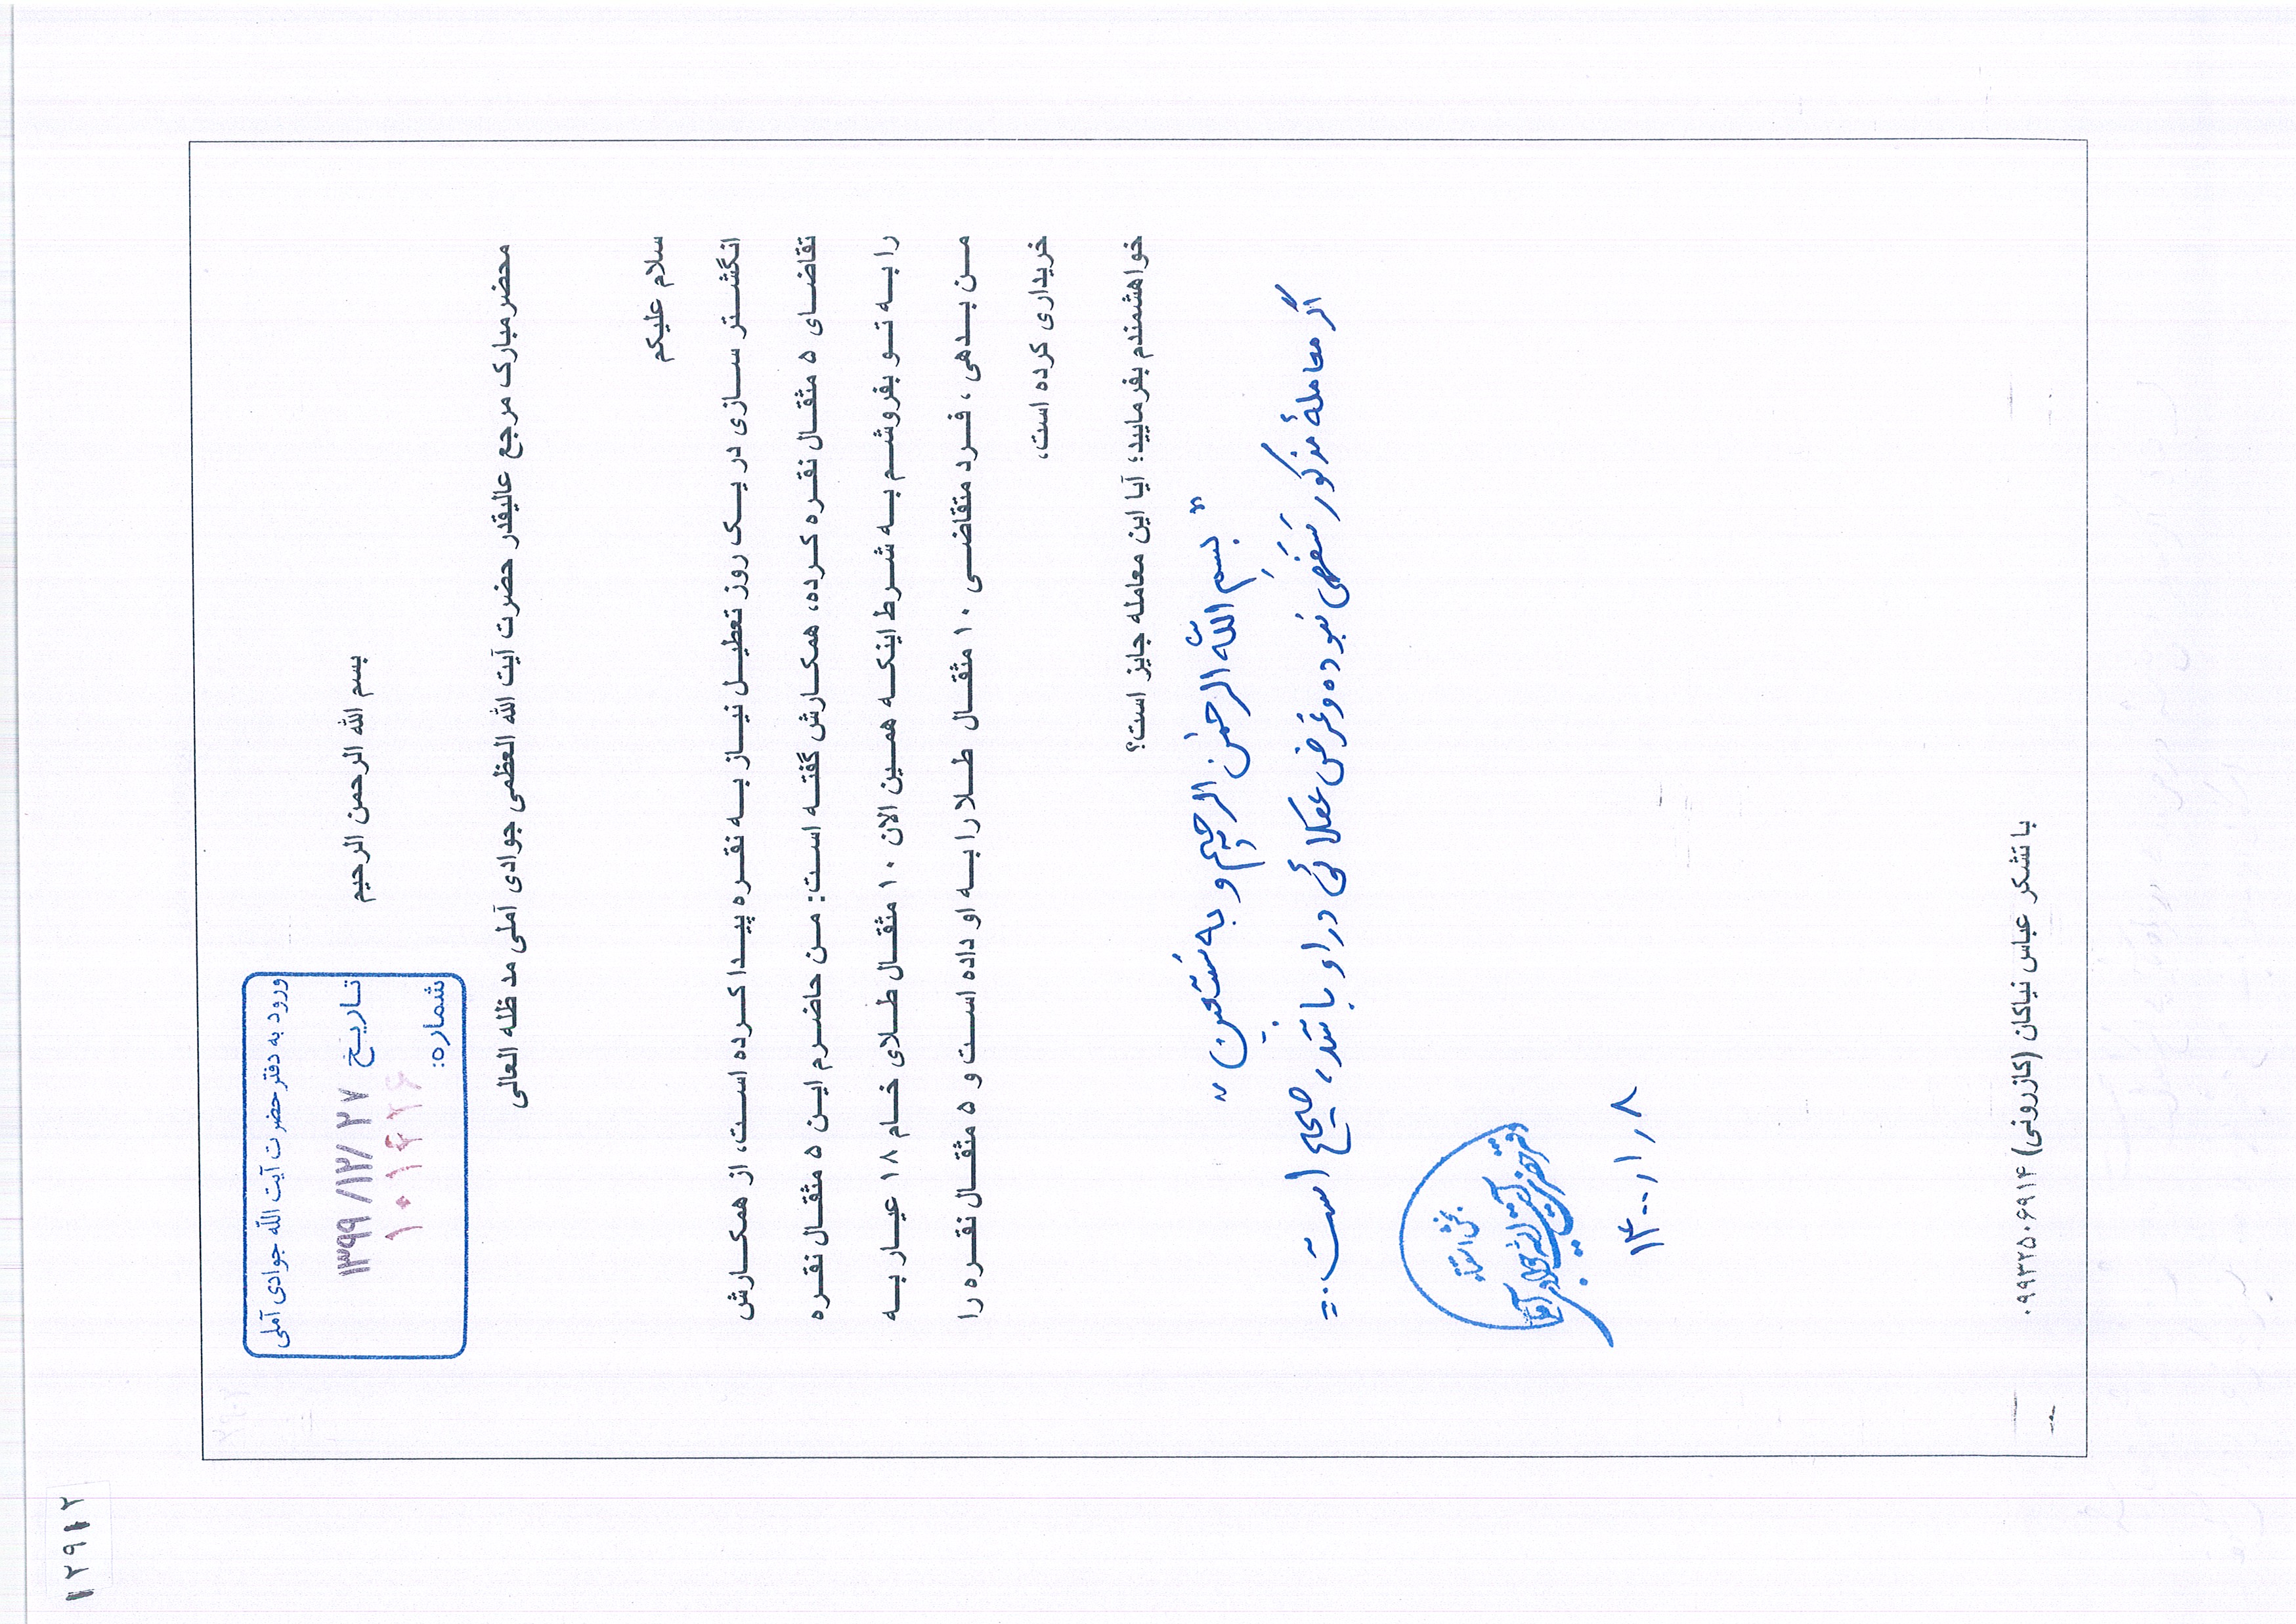 ۱۲۹۱۲
ورود به دفتر حضرت آیت الله جوادی آملی
تاریخ ۱۳۹۹/۱۲/۲۷
شماره: ۱۰۰۱۴۲۶
بسم الله الرحمن الرحیم
محضر مبارک مرجع عالیقدر حضرت آیت الله العظمی جوادی آملی مد ظله العالی
سلام علیکم
انگشتر سازی در یک روز تعطیل نیاز به نقره پیدا کرده است، از همکارش
تقاضای ۵ مثقال نقره کرده، همکارش گفته است: من حاضرم این ۵ مثقال نقره
را به تو بفروشم به شرط اینکه همین الان ۱۰ مثقال طلای خام ۱۸ عیار به
من بدهی، فرد متقاضی ۱۰ مثقال طلا را به او داده است و ۵ مثقال نقره را
خریداری کرده است،
خواهشمندم بفرمایید؛ آیا این معامله جایز است؟
" بسم الله الرحمن الرحیم و به نستعین "
اگر معاملهٔ مذکور سفهی نبوده و غرض عقلائی در او باشد، صحیح است.=
بخش استفتاء
دفتر حضرت آیت الله جوادی آملی
۱۴۰۰,۱,۸
با تشکر عباس نیاکان (کازرونی) ۰۹۹۳۲۵۰۶۹۱۴